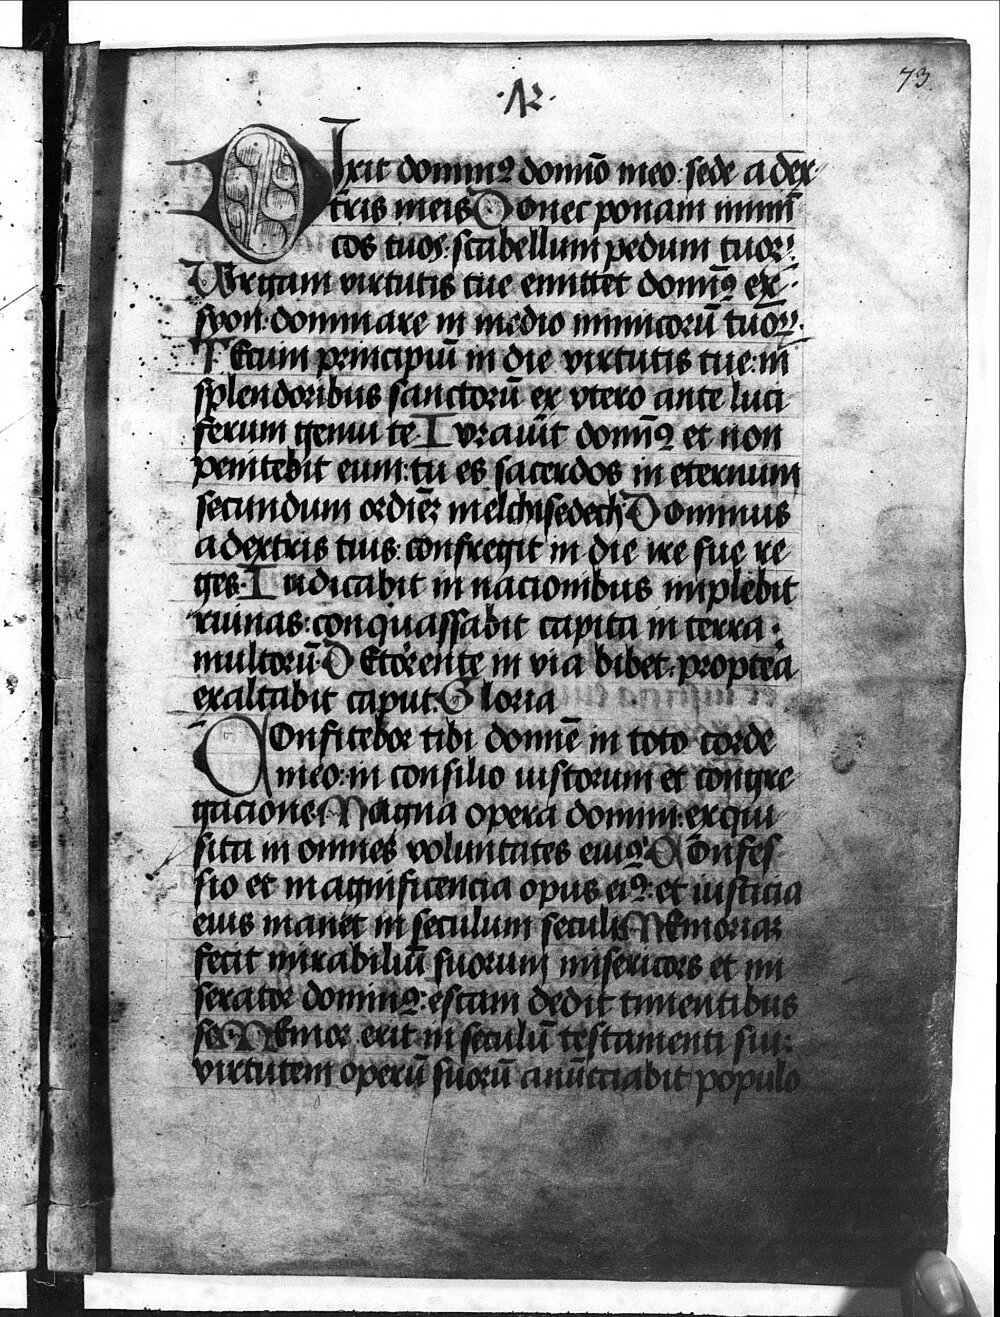 73
·12·
Dixit domin9 domīo meo: sede a dex
tris meis Donec ponam inimi
cos tuos: scabellum pedum tuoꝝ
Virgam virtutis tue emittet domīn9 ex
syon: dominare in medio inimicorū tuoꝝ.
Tecum principiū in die virtutis tue: in
splendoribus sanctorū ex vtero ante luci
ferum genui te. Iurauit domīn9 et non
penitebit eum: tu es sacerdos in eternum
secundum ordiēꝫ melchisedech Dominus
a dextris tuis: confregit in die ire sue re
ges. Iudicabit in nacionibus implebit
ruinas: conquassabit capita in terra
multorū. De torente in via bibet: proptea
exaltabit caput: Gloria
Confitebor tibi domīe in toto corde
meo: in consilio iustorum et congre
gacione Magna opera domini: exqui
sita in omnes voluntates eius. Confes
sio et magnificencia opus ei9: et iusticia
eius manet in seculum seculi Memoriaꝫ
fecit mirabiliū suorum misericors et mi
serator domin9: escam dedit timentibus
se Memor erit in seculū testamenti sui:
virtutem operū suorū anūcciabit populo